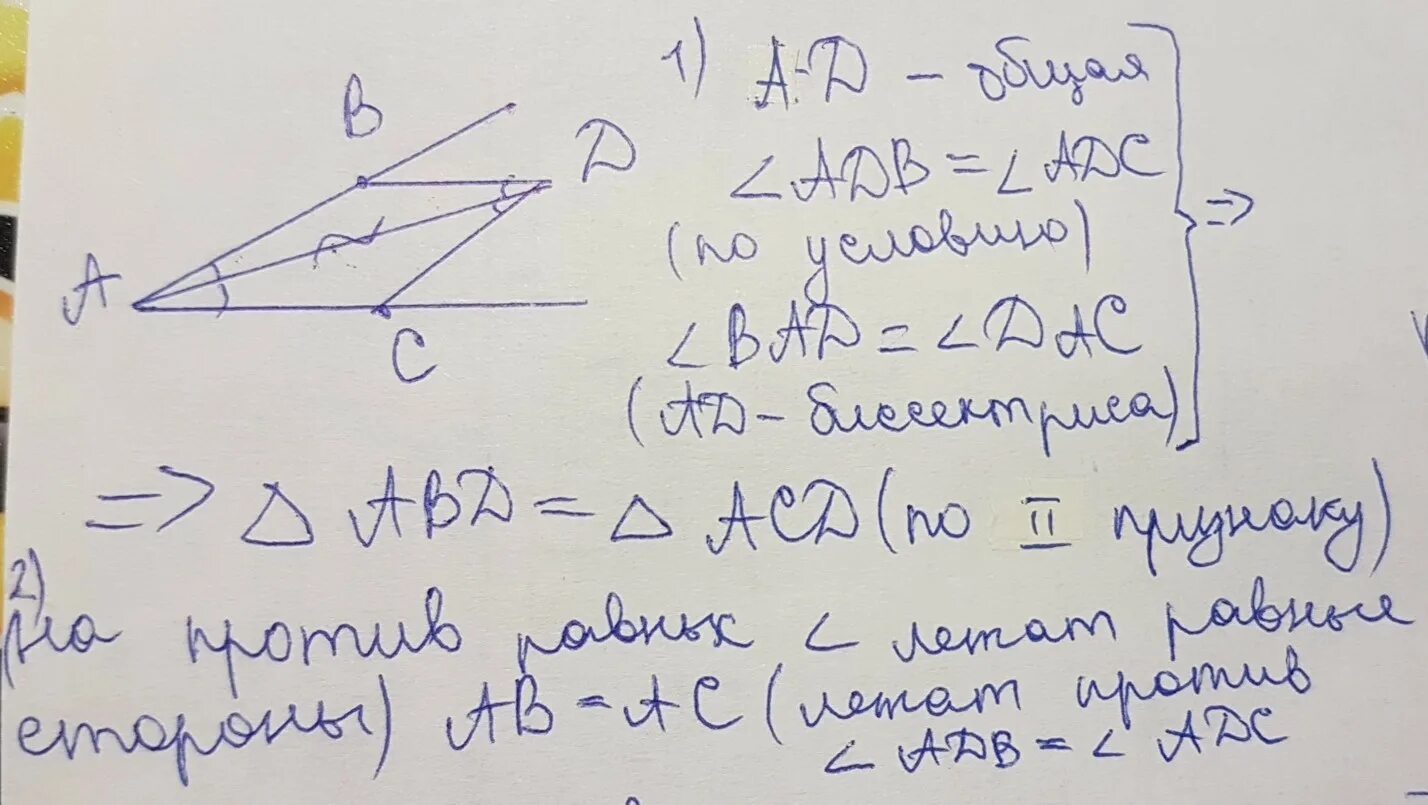 B
D
A
C
1) AD – общая
∠ADB = ∠ADC
(по условию)
∠BAD = ∠DAC
(AD – биссектриса)
=>
=> △ ABD = △ ACD (по II признаку)
2)
(на против равных ∠ лежат равные
стороны) AB = AC (лежат против
∠ADB = ∠ADC